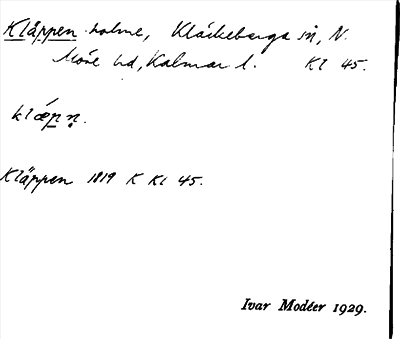 Kläppen holme, Kläckeberga sn, N.
Möre hd, Kalmar l. Kl 45.
klæ̀pn̥.
Kläppen 1819 K Kl 45.
Ivar Modéer 1929.